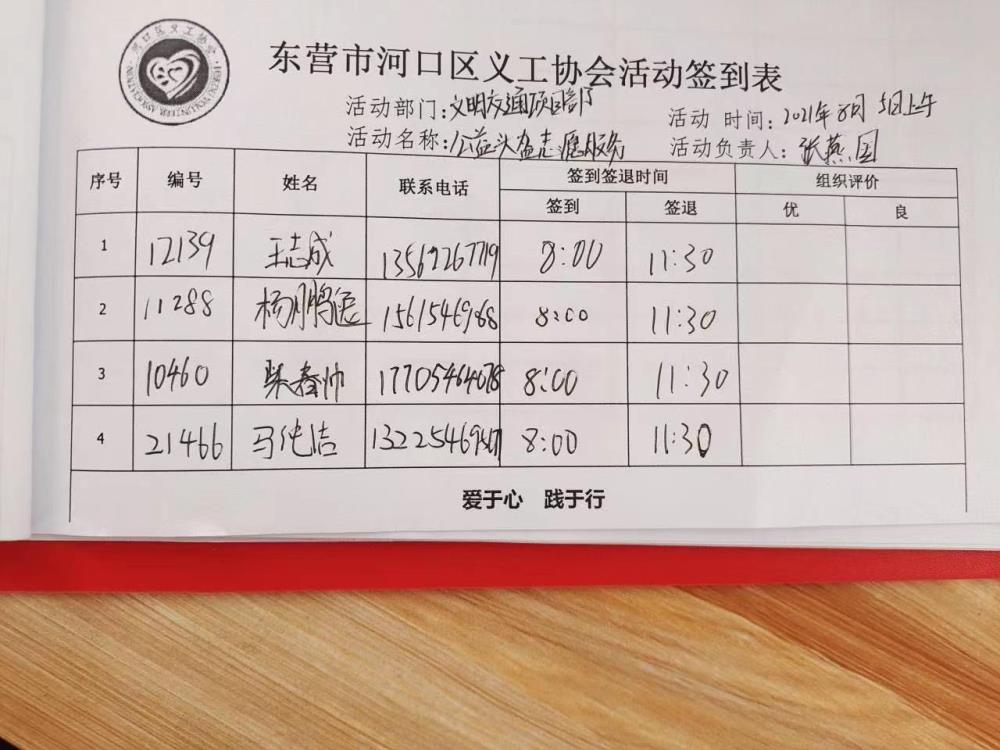 河口区义工协会
HEKOU VOLUNTEER ASSOCIATION
东营市河口区义工协会活动签到表
活动部门：文明交通项目部 活动 时间：2021年8月5日上午
活动名称：公益头盔志愿服务 活动负责人：张燕国
序号 编号 姓名 联系电话 签到签退时间 组织评价
签到 签退 优 良
1 12139 王志成 8:00 11:30
2 11288 杨鹏远 15615469868 8:00 11:30
3 10460 柴春帅 17705464678 8:00 11:30
4 21466 马纯洁 8:00 11:30
爱于心 践于行